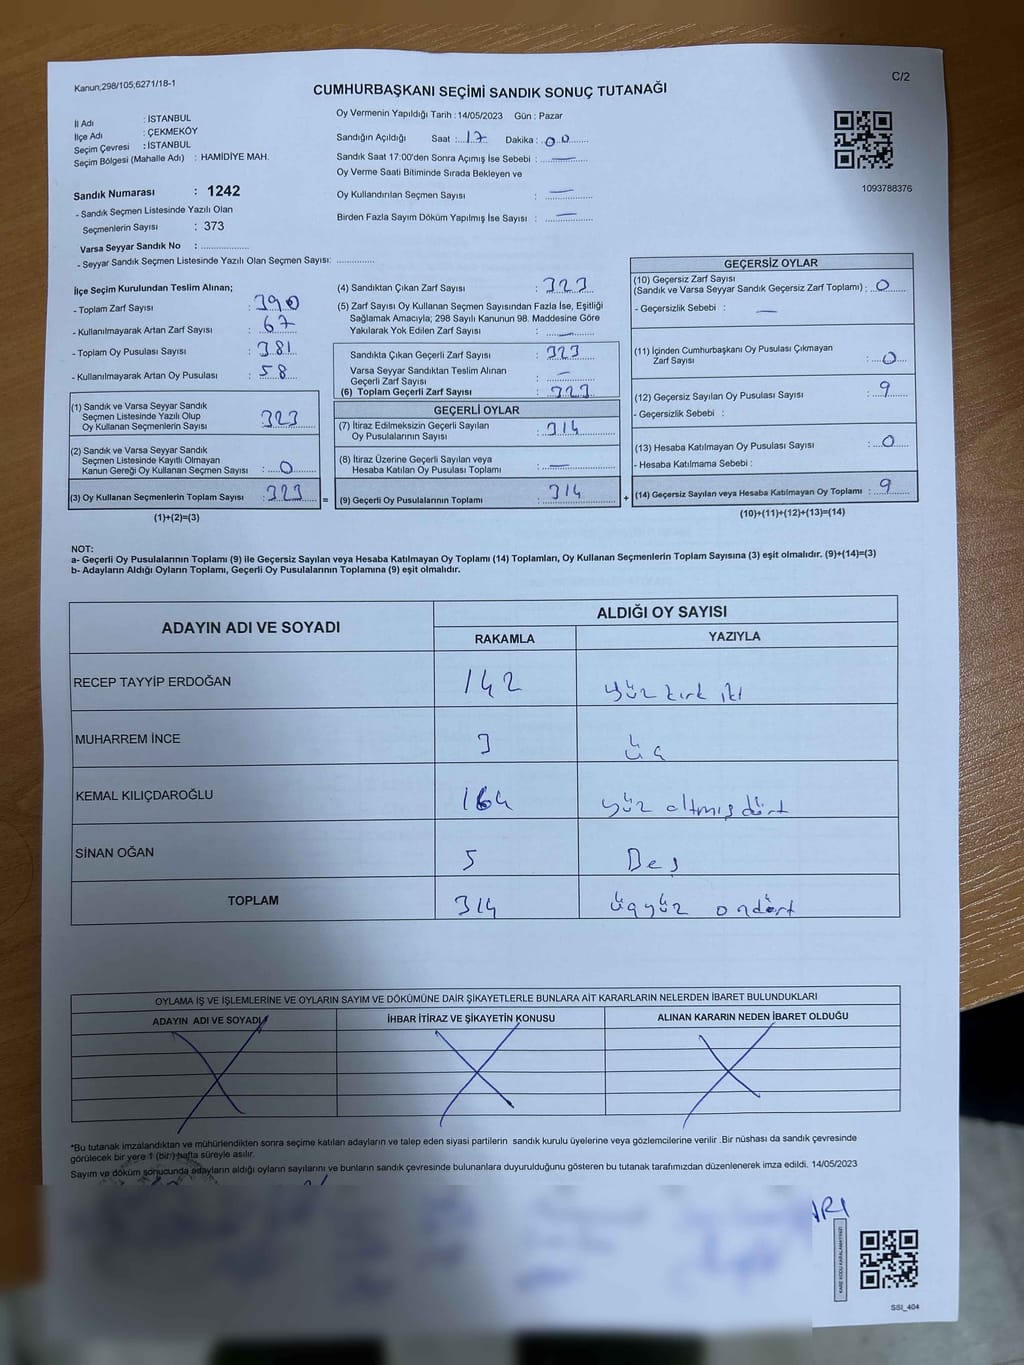 Kanun;298/105;6271/18-1
C/2
CUMHURBAŞKANI SEÇİMİ SANDIK SONUÇ TUTANAĞI
İl Adı : İSTANBUL
İlçe Adı : ÇEKMEKÖY
Seçim Çevresi : İSTANBUL
Seçim Bölgesi (Mahalle Adı) : HAMİDİYE MAH.
Sandık Numarası : 1242
- Sandık Seçmen Listesinde Yazılı Olan
Seçmenlerin Sayısı : 373
Varsa Seyyar Sandık No : ................
- Seyyar Sandık Seçmen Listesinde Yazılı Olan Seçmen Sayısı: .............
Oy Vermenin Yapıldığı Tarih : 14/05/2023 Gün : Pazar
Sandığın Açıldığı Saat : 17 Dakika : 00
Sandık Saat 17:00'den Sonra Açımış İse Sebebi : —
Oy Verme Saati Bitiminde Sırada Bekleyen ve
Oy Kullandırılan Seçmen Sayısı : —
Birden Fazla Sayım Döküm Yapılmış İse Sayısı : —
1093788376
İlçe Seçim Kurulundan Teslim Alınan;
- Toplam Zarf Sayısı : 390
- Kullanılmayarak Artan Zarf Sayısı : 67
- Toplam Oy Pusulası Sayısı : 381
- Kullanılmayarak Artan Oy Pusulası : 58
(1) Sandık ve Varsa Seyyar Sandık
Seçmen Listesinde Yazılı Olup
Oy Kullanan Seçmenlerin Sayısı : 323
(2) Sandık ve Varsa Seyyar Sandık
Seçmen Listesinde Kayıtlı Olmayan
Kanun Gereği Oy Kullanan Seçmen Sayısı : 0
(3) Oy Kullanan Seçmenlerin Toplam Sayısı : 323 =
(1)+(2)=(3)
(4) Sandıktan Çıkan Zarf Sayısı : 323
(5) Zarf Sayısı Oy Kullanan Seçmen Sayısından Fazla İse, Eşitliği
Sağlamak Amacıyla; 298 Sayılı Kanunun 98. Maddesine Göre
Yakılarak Yok Edilen Zarf Sayısı : —
Sandıkta Çıkan Geçerli Zarf Sayısı : 323
Varsa Seyyar Sandıktan Teslim Alınan
Geçerli Zarf Sayısı : —
(6) Toplam Geçerli Zarf Sayısı : 323
GEÇERLİ OYLAR
(7) İtiraz Edilmeksizin Geçerli Sayılan
Oy Pusulalarının Sayısı : 314
(8) İtiraz Üzerine Geçerli Sayılan veya
Hesaba Katılan Oy Pusulası Toplamı : —
(9) Geçerli Oy Pusulalarının Toplamı : 314 +
GEÇERSİZ OYLAR
(10) Geçersiz Zarf Sayısı
(Sandık ve Varsa Seyyar Sandık Geçersiz Zarf Toplamı) : 0
- Geçersizlik Sebebi : —
(11) İçinden Cumhurbaşkanı Oy Pusulası Çıkmayan
Zarf Sayısı : 0
(12) Geçersiz Sayılan Oy Pusulası Sayısı : 9
- Geçersizlik Sebebi :
(13) Hesaba Katılmayan Oy Pusulası Sayısı : 0
- Hesaba Katılmama Sebebi :
(14) Geçersiz Sayılan veya Hesaba Katılmayan Oy Toplamı : 9
(10)+(11)+(12)+(13)=(14)
NOT:
a- Geçerli Oy Pusulalarının Toplamı (9) ile Geçersiz Sayılan veya Hesaba Katılmayan Oy Toplamı (14) Toplamları, Oy Kullanan Seçmenlerin Toplam Sayısına (3) eşit olmalıdır. (9)+(14)=(3)
b- Adayların Aldığı Oyların Toplamı, Geçerli Oy Pusulalarının Toplamına (9) eşit olmalıdır.
ADAYIN ADI VE SOYADI ALDIĞI OY SAYISI
RAKAMLA YAZIYLA
RECEP TAYYİP ERDOĞAN 142 yüz kırk iki
MUHARREM İNCE 3 üç
KEMAL KILIÇDAROĞLU 164 yüz altmış dört
SİNAN OĞAN 5 Beş
TOPLAM 314 üçyüz ondört
OYLAMA İŞ VE İŞLEMLERİNE VE OYLARIN SAYIM VE DÖKÜMÜNE DAİR ŞİKAYETLERLE BUNLARA AİT KARARLARIN NELERDEN İBARET BULUNDUKLARI
ADAYIN ADI VE SOYADI İHBAR İTİRAZ VE ŞİKAYETİN KONUSU ALINAN KARARIN NEDEN İBARET OLDUĞU
*Bu tutanak imzalandıktan ve mühürlendikten sonra seçime katılan adayların ve talep eden siyasi partilerin sandık kurulu üyelerine veya gözlemcilerine verilir .Bir nüshası da sandık çevresinde
görülecek bir yere 1 (bir:) hafta süreyle asılır.
Sayım ve döküm sonucunda adayların aldığı oyların sayılarını ve bunların sandık çevresinde bulunanlara duyurulduğunu gösteren bu tutanak tarafımızdan düzenlenerek imza edildi. 14/05/2023
KARE KODU KARALAMAYINIZ!
SSI_404